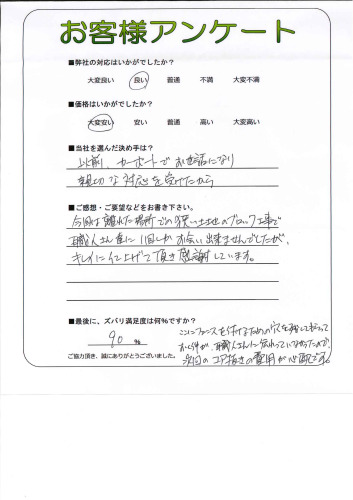 お客様アンケート
■弊社の対応はいかがでしたか?
大変良い 良い 普通 不満 大変不満
■価格はいかがでしたか?
大変安い 安い 普通 高い 大変高い
■当社を選んだ決め手は?
以前、カーポートでお世話になり
親切な対応を受けたから
■ご感想・ご要望などをお書き下さい。
今回は離れた場所での狭い土地のブロック工事で
職人さん達に1回しかお会い出来ませんでしたが、
キレイに仕上げて頂き感謝しています。
■最後に、ズバリ満足度は何%ですか?
90 %
ご協力頂き、誠にありがとうございました。
ここにフェンスを付けるための穴を残してもらって
おく件が、職人さんに伝わっていなかったので、
次回のコア抜きの費用が心配です。